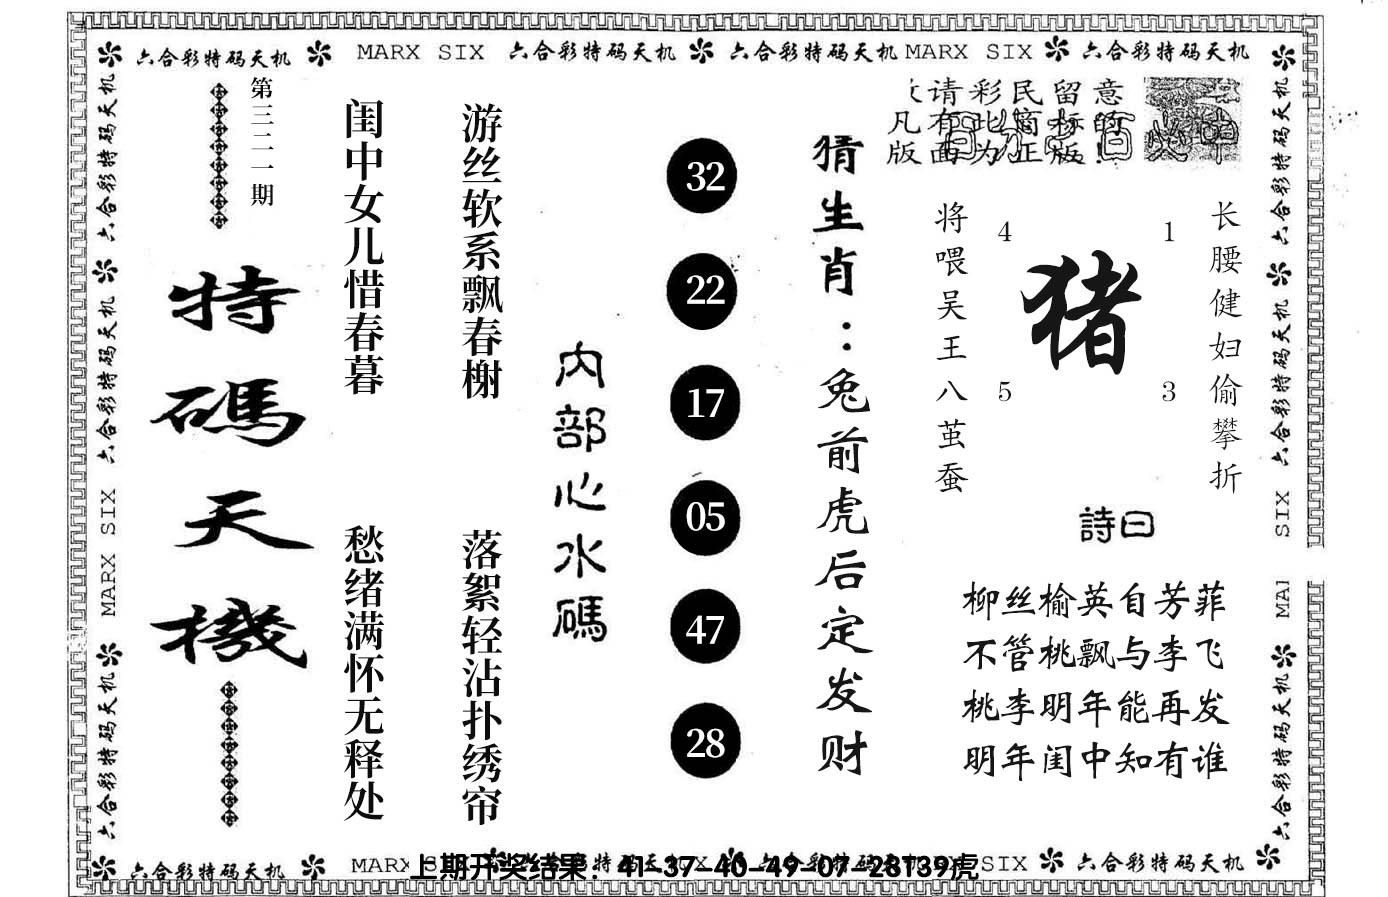 六合彩特码天机 MARX SIX 六合彩特码天机 六合彩特码天机 MARX SIX 六合彩特码天机
第三二二一期
特碼天機
闺中女儿惜春暮
愁绪满怀无释处
游丝软系飘春榭
落絮轻沾扑绣帘
内部心水碼
32
22
17
05
47
28
猜生肖：兔前虎后定发财
请彩民留意
凡有此商标的
版面为正版!
将喂吴王八茧蚕
4
1
猪
5
3
长腰健妇偷攀折
詩曰
柳丝榆英自芳菲
不管桃飘与李飞
桃李明年能再发
明年闺中知有谁
六合彩特码天机
六合彩特码天机
MARX SIX
六合彩特码天机
六合彩特码天机
六合彩特码天机
SIX
六合彩特码天机
六合彩特码天机 MARX
上期开奖结果：41-37-40-49-07-28T39虎
SIX 六合彩特码天机